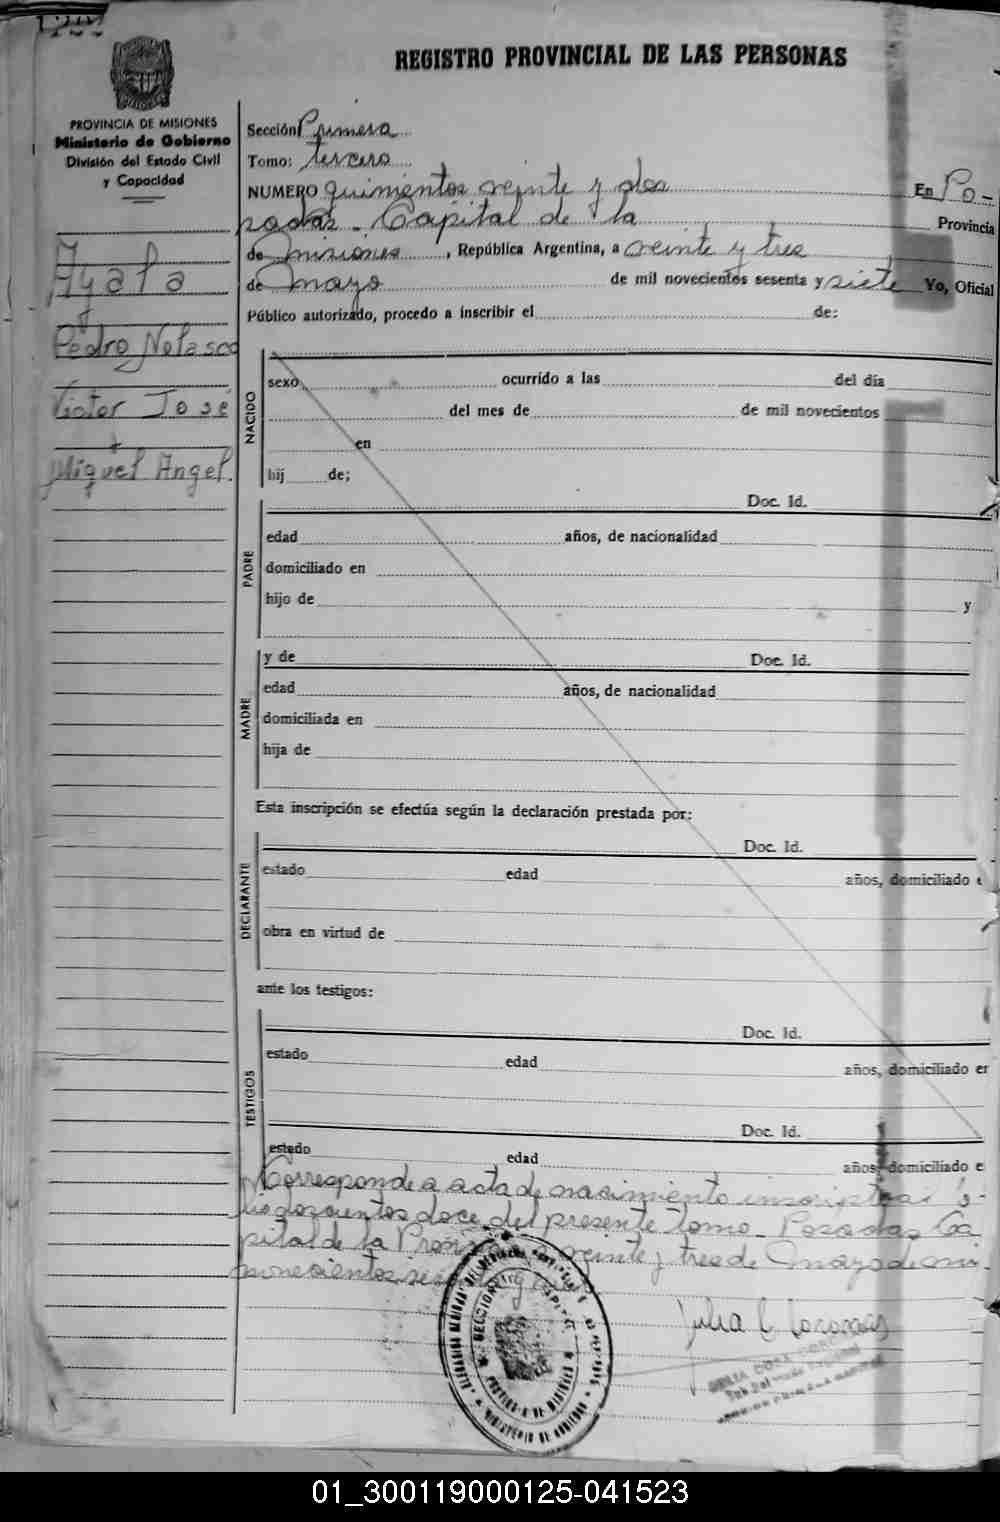 REGISTRO PROVINCIAL DE LAS PERSONAS
PROVINCIA DE MISIONES
Ministerio de Gobierno
División del Estado Civil
y Capacidad
Ayala
y
Pedro Nolasco
Víctor José
y
Miguel Angel.
Sección Primera
Tomo: tercero
NUMERO quinientos veinte y dos En Po-
sadas - Capital de la Provincia
de Misiones, República Argentina, a veinte y tres
de mayo de mil novecientos sesenta y siete Yo, Oficial
Público autorizado, procedo a inscribir el de:
NACIDO
sexo ocurrido a las del día
del mes de de mil novecientos
en
hij de;
PADRE
Doc. Id.
edad años, de nacionalidad
domiciliado en
hijo de y
MADRE
y de Doc. Id.
edad años, de nacionalidad
domiciliada en
hija de
Esta inscripción se efectúa según la declaración prestada por:
DECLARANTE
Doc. Id.
estado edad años, domiciliado e
obra en virtud de
ante los testigos:
TESTIGOS
Doc. Id.
estado edad años, domiciliado en
Doc. Id.
estado edad años, domiciliado e
Corresponde a acta de nacimiento inscripta
doscientos doce del presente tomo - Posadas Ca
pital de la veinte y tres de Mayo de mi
Julia C
PROVINCIA DE MISIONES
MINISTERIO DE GOBIERNO
01_300119000125-041523